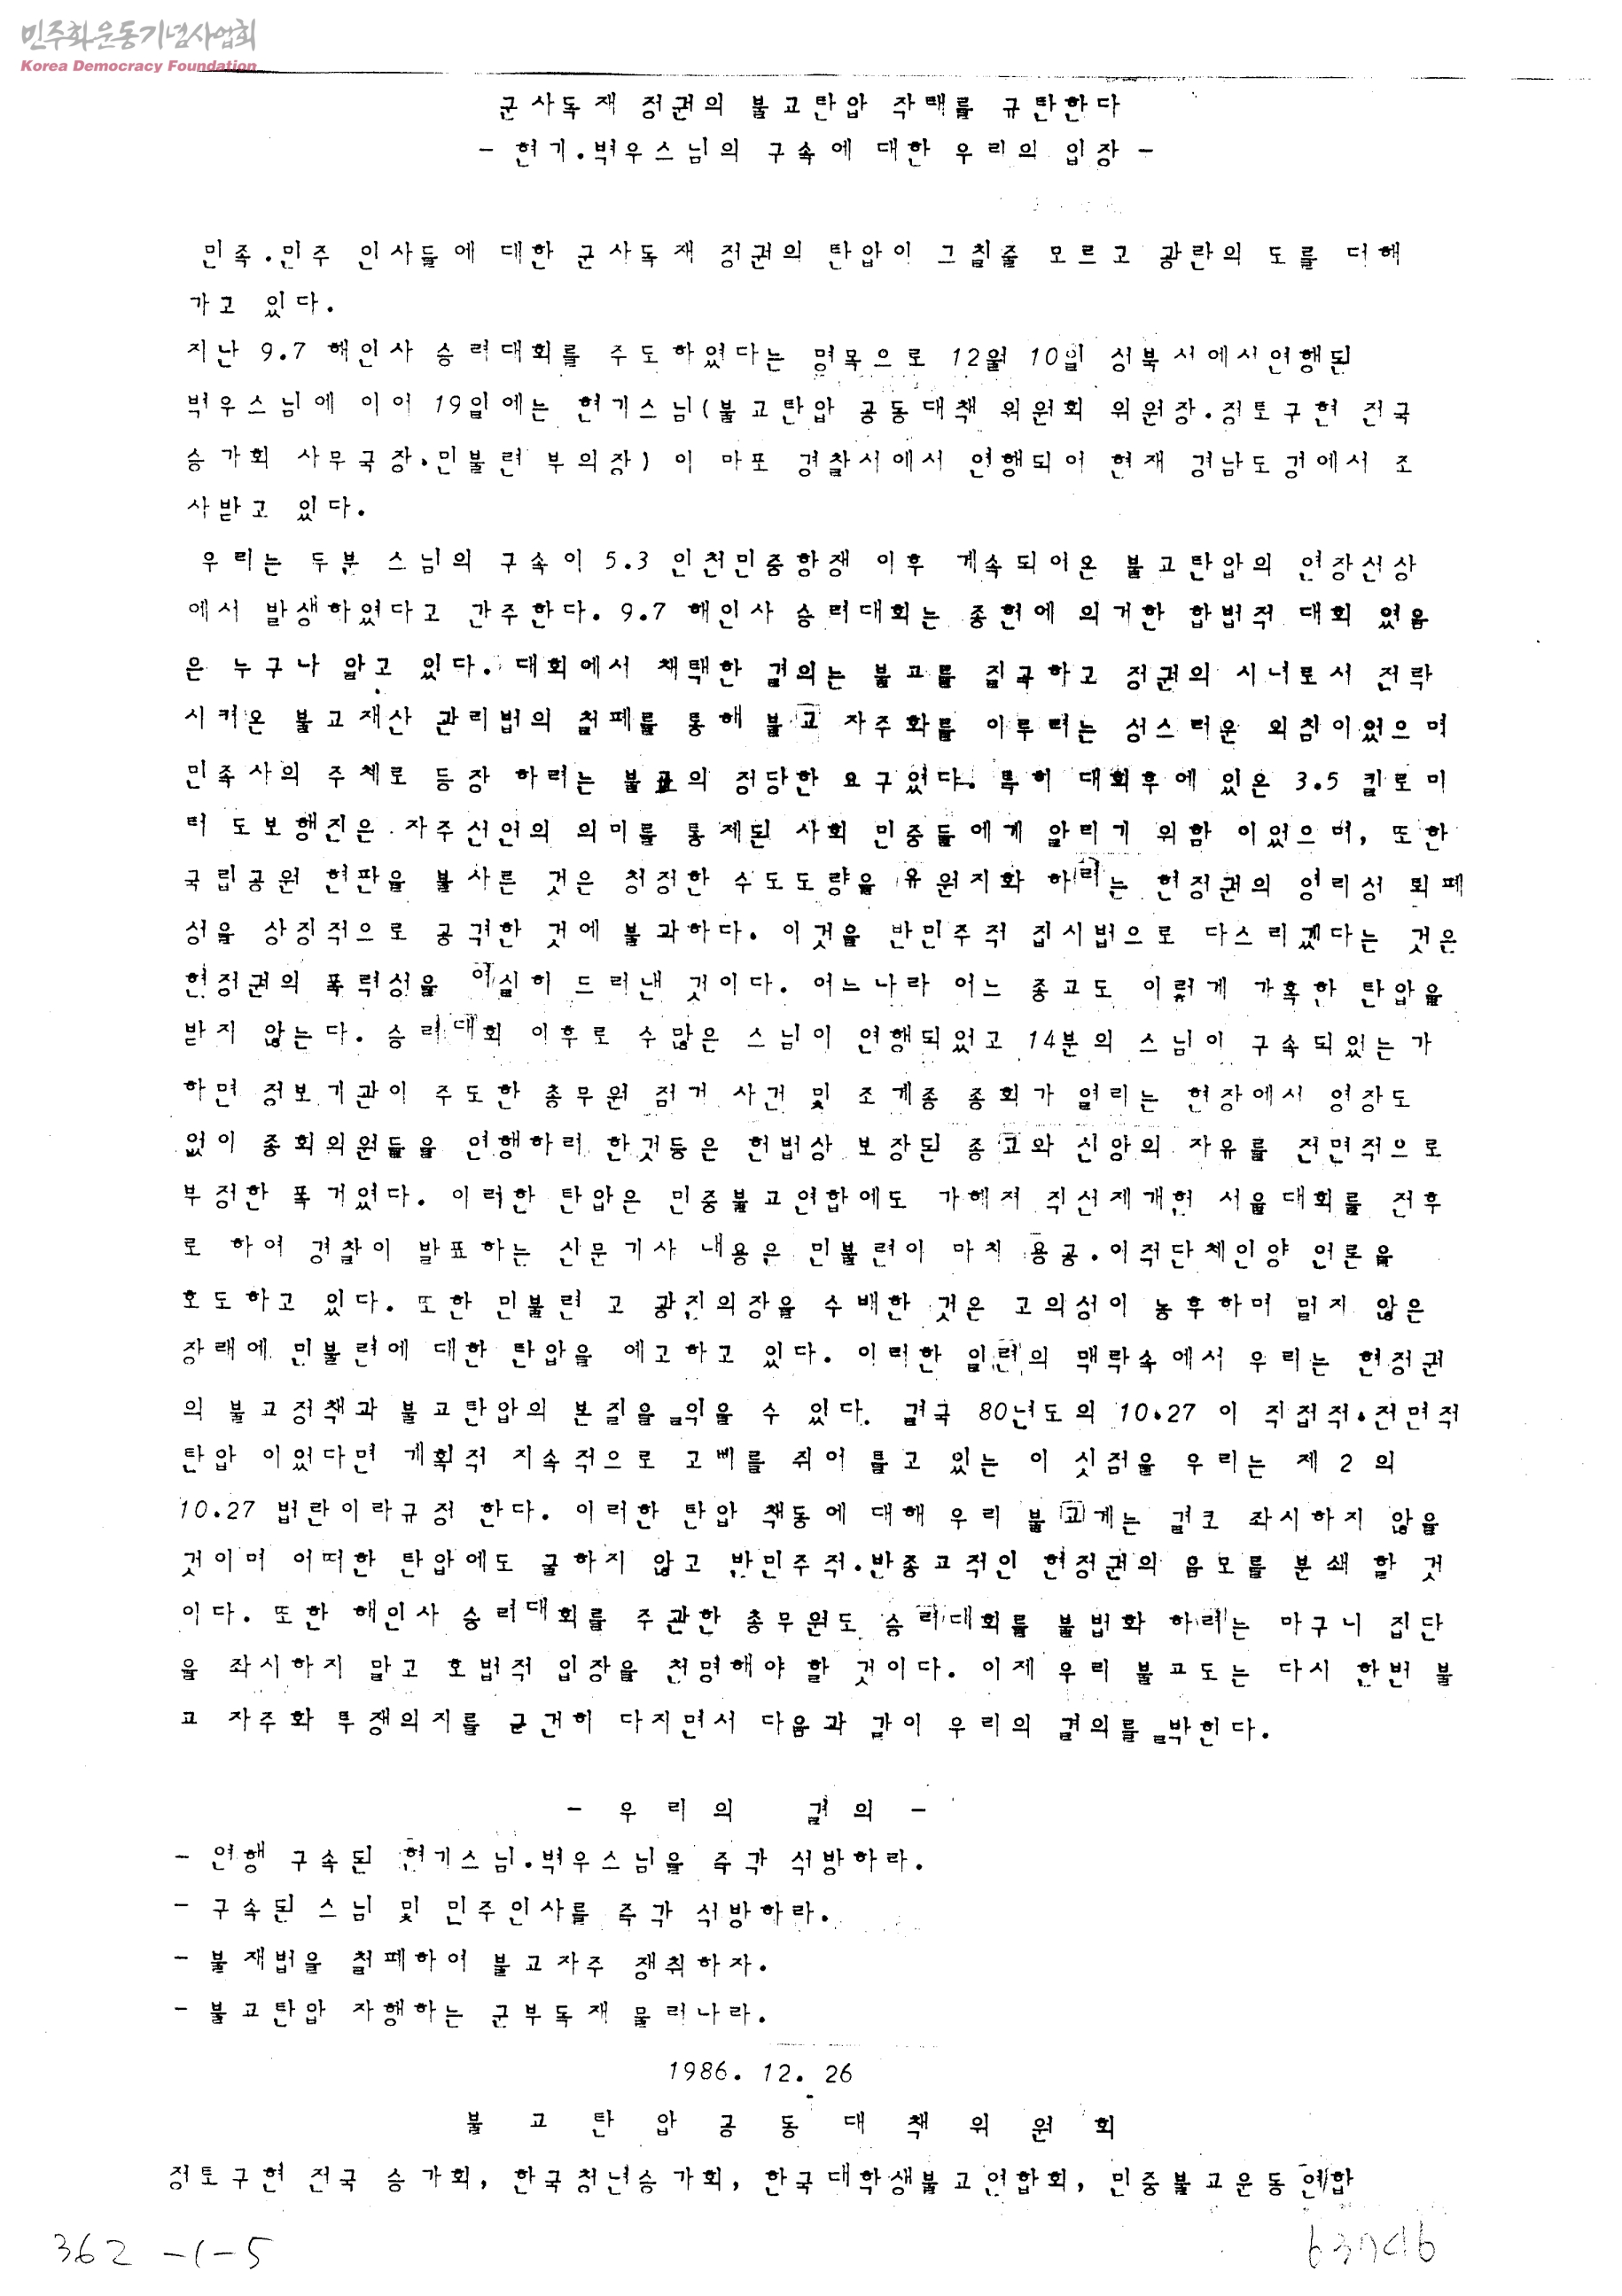 민주화운동기념사업회
Korea Democracy Foundation
군사독재 정권의 불교탄압 작태를 규탄한다
- 현기.벽우스님의 구속에 대한 우리의 입장 -
민족.민주 인사들에 대한 군사독재 정권의 탄압이 그칠줄 모르고 광란의 도를 더해
가고 있다.
지난 9.7 해인사 승려대회를 주도하였다는 명목으로 12월 10일 성북서에서연행된
벽우스님에 이어 19일에는 현기스님(불교탄압 공동대책 위원회 위원장.정토구현 전국
승가회 사무국장.민불련 부의장) 이 마포 경찰서에서 연행되어 현재 경남도경에서 조
사받고 있다.
우리는 두분 스님의 구속이 5.3 인천민중항쟁 이후 계속되어온 불교탄압의 연장선상
에서 발생하였다고 간주한다. 9.7 해인사 승려대회는 종헌에 의거한 합법적 대회 였음
은 누구나 알고 있다. 대회에서 채택한 결의는 불교를 질곡하고 정권의 시녀로서 전락
시켜온 불교재산 관리법의 철폐를 통해 불교 자주화를 이루려는 성스러운 외침이었으며
민족사의 주체로 등장 하려는 불교의 정당한 요구였다. 특히 대회후에 있은 3.5 킬로미
터 도보행진은 자주선언의 의미를 통제된 사회 민중들에게 알리기 위함 이었으며, 또한
국립공원 현판을 불사른 것은 청정한 수도도량을 유원지화 하려는 현정권의 영리성 퇴폐
성을 상징적으로 공격한 것에 불과하다. 이것을 반민주적 집시법으로 다스리겠다는 것은
현정권의 폭력성을 여실히 드러낸 것이다. 어느나라 어느 종교도 이렇게 가혹한 탄압을
받지 않는다. 승려대회 이후로 수많은 스님이 연행되었고 14분의 스님이 구속되있는가
하면 정보기관이 주도한 총무원 점거 사건 및 조계종 종회가 열리는 현장에서 영장도
없이 종회의원들을 연행하려 한것등은 헌법상 보장된 종교와 신앙의 자유를 전면적으로
부정한 폭거였다. 이러한 탄압은 민중불교연합에도 가해져 직선제개헌 서울대회를 전후
로 하여 경찰이 발표하는 신문기사 내용은 민불련이 마치 용공.이적단체인양 언론을
호도하고 있다. 또한 민불련 고 광진의장을 수배한 것은 고의성이 농후하며 멀지 않은
장래에 민불련에 대한 탄압을 예고하고 있다. 이러한 일련의 맥락속에서 우리는 현정권
의 불교정책과 불교탄압의 본질을 읽을 수 있다. 결국 80년도의 10.27 이 직접적.전면적
탄압 이었다면 계획적 지속적으로 고삐를 쥐어 틀고 있는 이 싯점을 우리는 제 2 의
10.27 법란이라규정 한다. 이러한 탄압 책동에 대해 우리 불교계는 결코 좌시하지 않을
것이며 어떠한 탄압에도 굴하지 않고 반민주적.반종교적인 현정권의 음모를 분쇄 할 것
이다. 또한 해인사 승려대회를 주관한 총무원도 승려대회를 불법화 하려는 마구니 집단
을 좌시하지 말고 호법적 입장을 천명해야 할 것이다. 이제 우리 불교도는 다시 한번 불
교 자주화 투쟁의지를 굳건히 다지면서 다음과 같이 우리의 결의를 밝힌다.
- 우 리 의 결 의 -
- 연행 구속된 현기스님.벽우스님을 즉각 석방하라.
- 구속된 스님 및 민주인사를 즉각 석방하라.
- 불재법을 철폐하여 불교자주 쟁취하자.
- 불교탄압 자행하는 군부독재 물러나라.
1986. 12. 26
불 교 탄 압 공 동 대 책 위 원 회
정토구현 전국 승가회, 한국청년승가회, 한국대학생불교연합회, 민중불교운동연합
362 -1-5